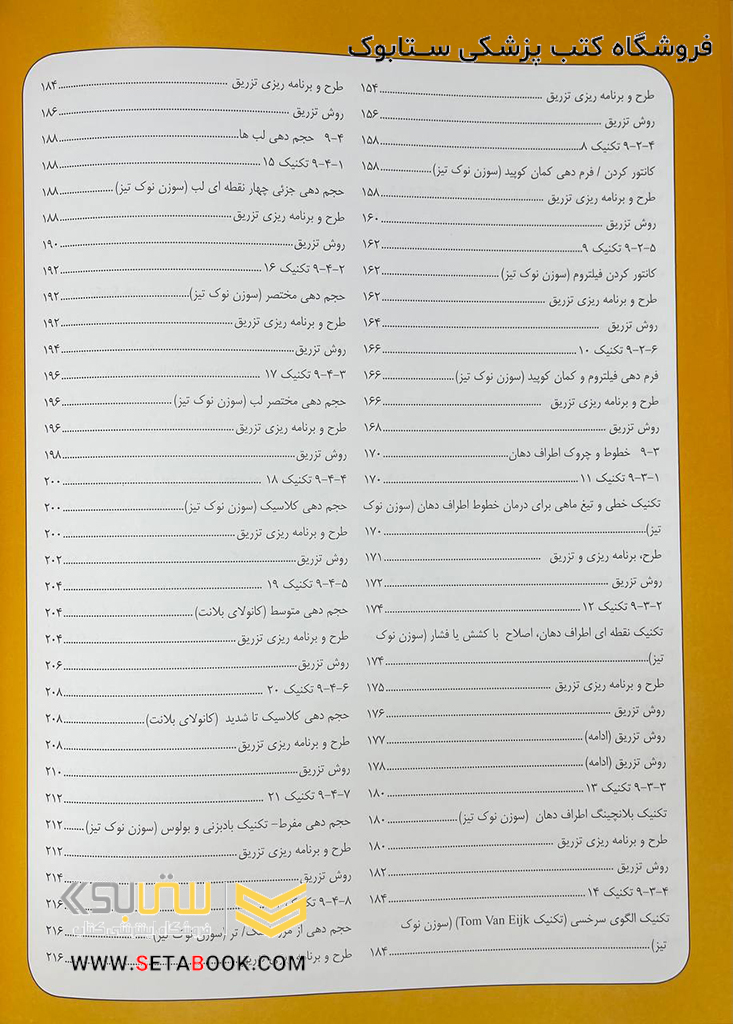 فروشگاه کتب پزشکی ستابوک
طرح و برنامه ریزی تزریق ۱۵۴
روش تزریق ۱۵۶
۹-۲-۴ تکنیک ۸ ۱۵۸
کانتور کردن / فرم دهی کمان کوپید (سوزن نوک تیز) ۱۵۸
طرح و برنامه ریزی تزریق ۱۵۸
روش تزریق ۱۶۰
۹-۲-۵ تکنیک ۹ ۱۶۲
کانتور کردن فیلتروم (سوزن نوک تیز) ۱۶۲
طرح و برنامه ریزی تزریق ۱۶۲
روش تزریق ۱۶۴
۹-۲-۶ تکنیک ۱۰ ۱۶۶
فرم دهی فیلتروم و کمان کوپید (سوزن نوک تیز) ۱۶۶
طرح و برنامه ریزی تزریق ۱۶۶
روش تزریق ۱۶۸
۹-۳ خطوط و چروک اطراف دهان ۱۷۰
۹-۳-۱ تکنیک ۱۱ ۱۷۰
تکنیک خطی و تیغ ماهی برای درمان خطوط اطراف دهان (سوزن نوک
تیز) ۱۷۰
طرح، برنامه ریزی و تزریق ۱۷۱
روش تزریق ۱۷۲
۹-۳-۲ تکنیک ۱۲ ۱۷۴
تکنیک نقطه ای اطراف دهان، اصلاح با کشش یا فشار (سوزن نوک
تیز) ۱۷۴
طرح و برنامه ریزی تزریق ۱۷۵
روش تزریق ۱۷۶
روش تزریق (ادامه) ۱۷۷
روش تزریق (ادامه) ۱۷۸
۹-۳-۳ تکنیک ۱۳ ۱۸۰
تکنیک بلانچینگ اطراف دهان (سوزن نوک تیز) ۱۸۰
طرح و برنامه ریزی تزریق ۱۸۰
روش تزریق ۱۸۲
۹-۳-۴ تکنیک ۱۴ ۱۸۴
تکنیک الگوی سرخسی (تکنیک Tom Van Eijk) (سوزن نوک
تیز) ۱۸۴
طرح و برنامه ریزی تزریق ۱۸۴
روش تزریق ۱۸۶
۹-۴ حجم دهی لب ها ۱۸۸
۹-۴-۱ تکنیک ۱۵ ۱۸۸
حجم دهی جزئی چهار نقطه ای لب (سوزن نوک تیز) ۱۸۸
طرح و برنامه ریزی تزریق ۱۸۸
روش تزریق ۱۹۰
۹-۴-۲ تکنیک ۱۶ ۱۹۲
حجم دهی مختصر (سوزن نوک تیز) ۱۹۲
طرح و برنامه ریزی تزریق ۱۹۲
روش تزریق ۱۹۴
۹-۴-۳ تکنیک ۱۷ ۱۹۶
حجم دهی مختصر لب (سوزن نوک تیز) ۱۹۶
طرح و برنامه ریزی تزریق ۱۹۶
روش تزریق ۱۹۸
۹-۴-۴ تکنیک ۱۸ ۲۰۰
حجم دهی کلاسیک (سوزن نوک تیز) ۲۰۰
طرح و برنامه ریزی تزریق ۲۰۰
روش تزریق ۲۰۲
۹-۴-۵ تکنیک ۱۹ ۲۰۴
حجم دهی متوسط (کانولای بلانت) ۲۰۴
طرح و برنامه ریزی تزریق ۲۰۴
روش تزریق ۲۰۶
۹-۴-۶ تکنیک ۲۰ ۲۰۸
حجم دهی کلاسیک تا شدید (کانولای بلانت) ۲۰۸
طرح و برنامه ریزی تزریق ۲۰۸
روش تزریق ۲۱۰
۹-۴-۷ تکنیک ۲۱ ۲۱۲
حجم دهی مفرط- تکنیک بادبزنی و بولوس (سوزن نوک تیز) ۲۱۲
طرح و برنامه ریزی تزریق ۲۱۲
روش تزریق ۲۱۴
۹-۴-۸ تکنیک ۲۱۶
حجم دهی از مرز / تر (سوزن نوک تیز) ۲۱۶
طرح و برنامه ۲۱۶
ستابوک
فروشگاه اینترنتی کتاب
WWW.SETABOOK.COM